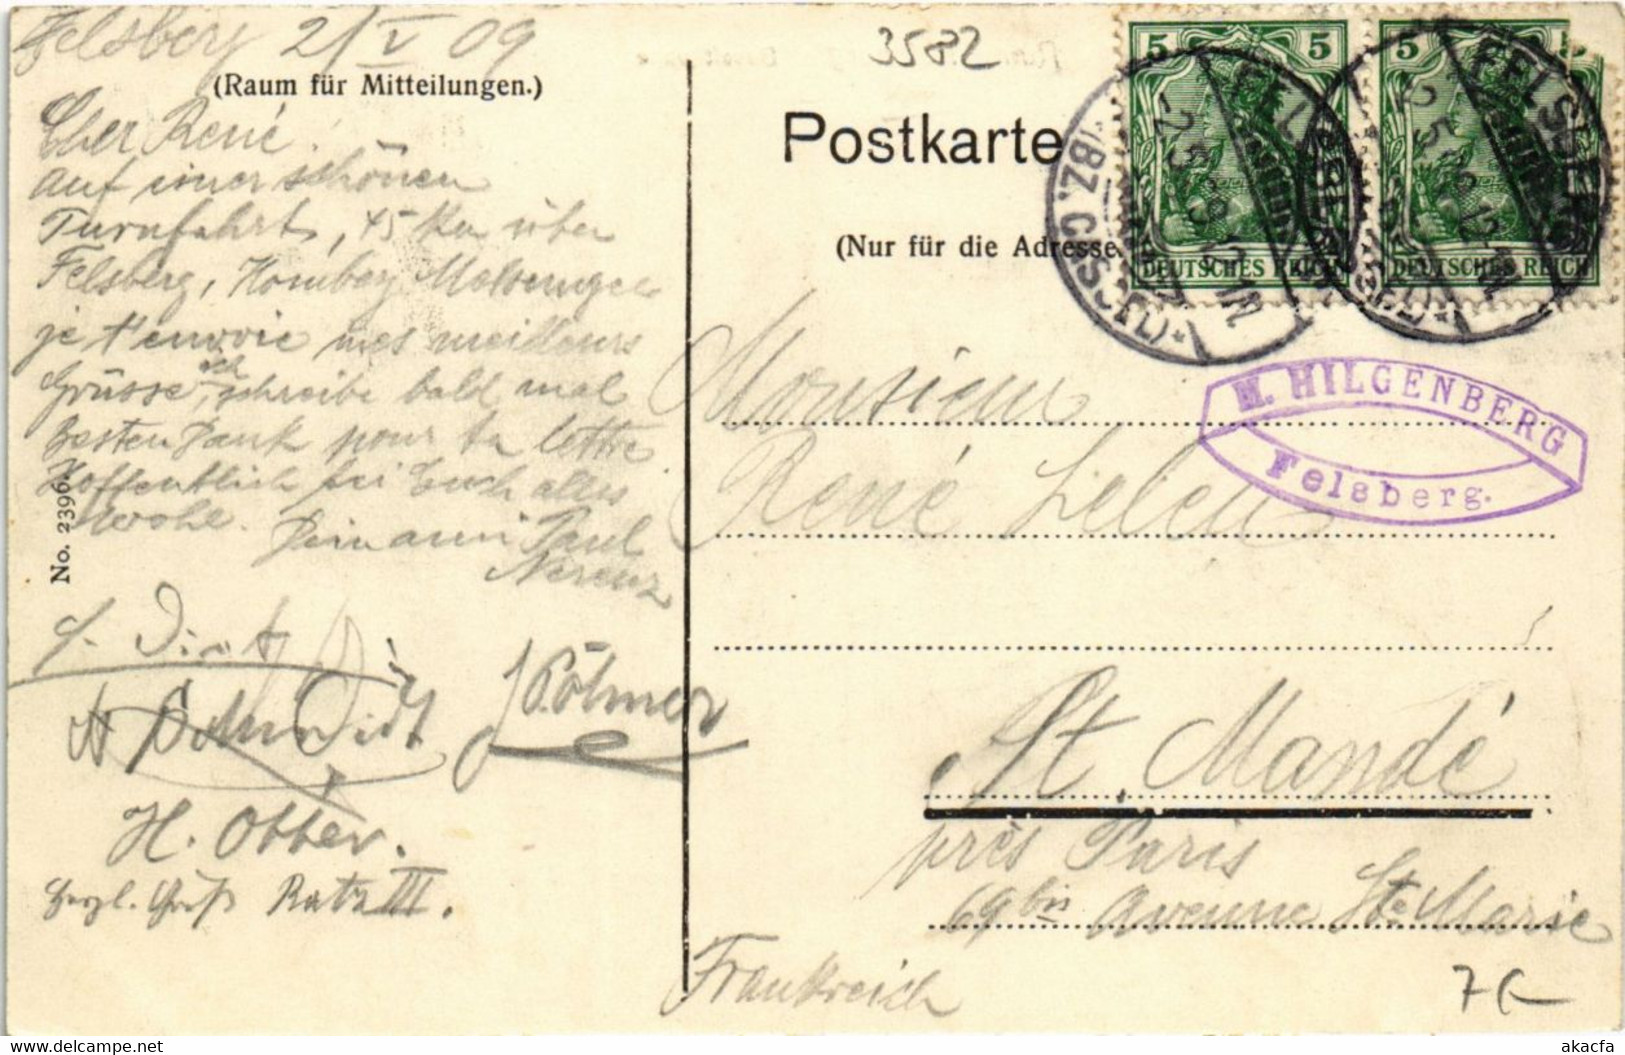 Felsberg 2/V 09
3582
(Raum für Mitteilungen.)
Cher René!
Auf einer schönen
Turnfahrt, 45 km über
Felsberg, Homberg,
je t'envoie mes meilleurs
Grüsse, ich schreibe bald mal
Besten Dank pour ta lettre
Hoffentlich bei Euch alles
wohl. Dein ami Paul
No. 2396.
A Schmidt
H. Otter.
Herzl. Gruß Ratz III.
Postkarte
(Nur für die Adresse
5 5
DEUTSCHES REICH
5
DEUTSCHES REICH
FELSBERG
(BZ. CASSEL)
M. HILGENBERG
Felsberg.
Monsieur
René
St. Mandé
près Paris
69 bis Avenue Ste Marie
Frankreich
akacfa